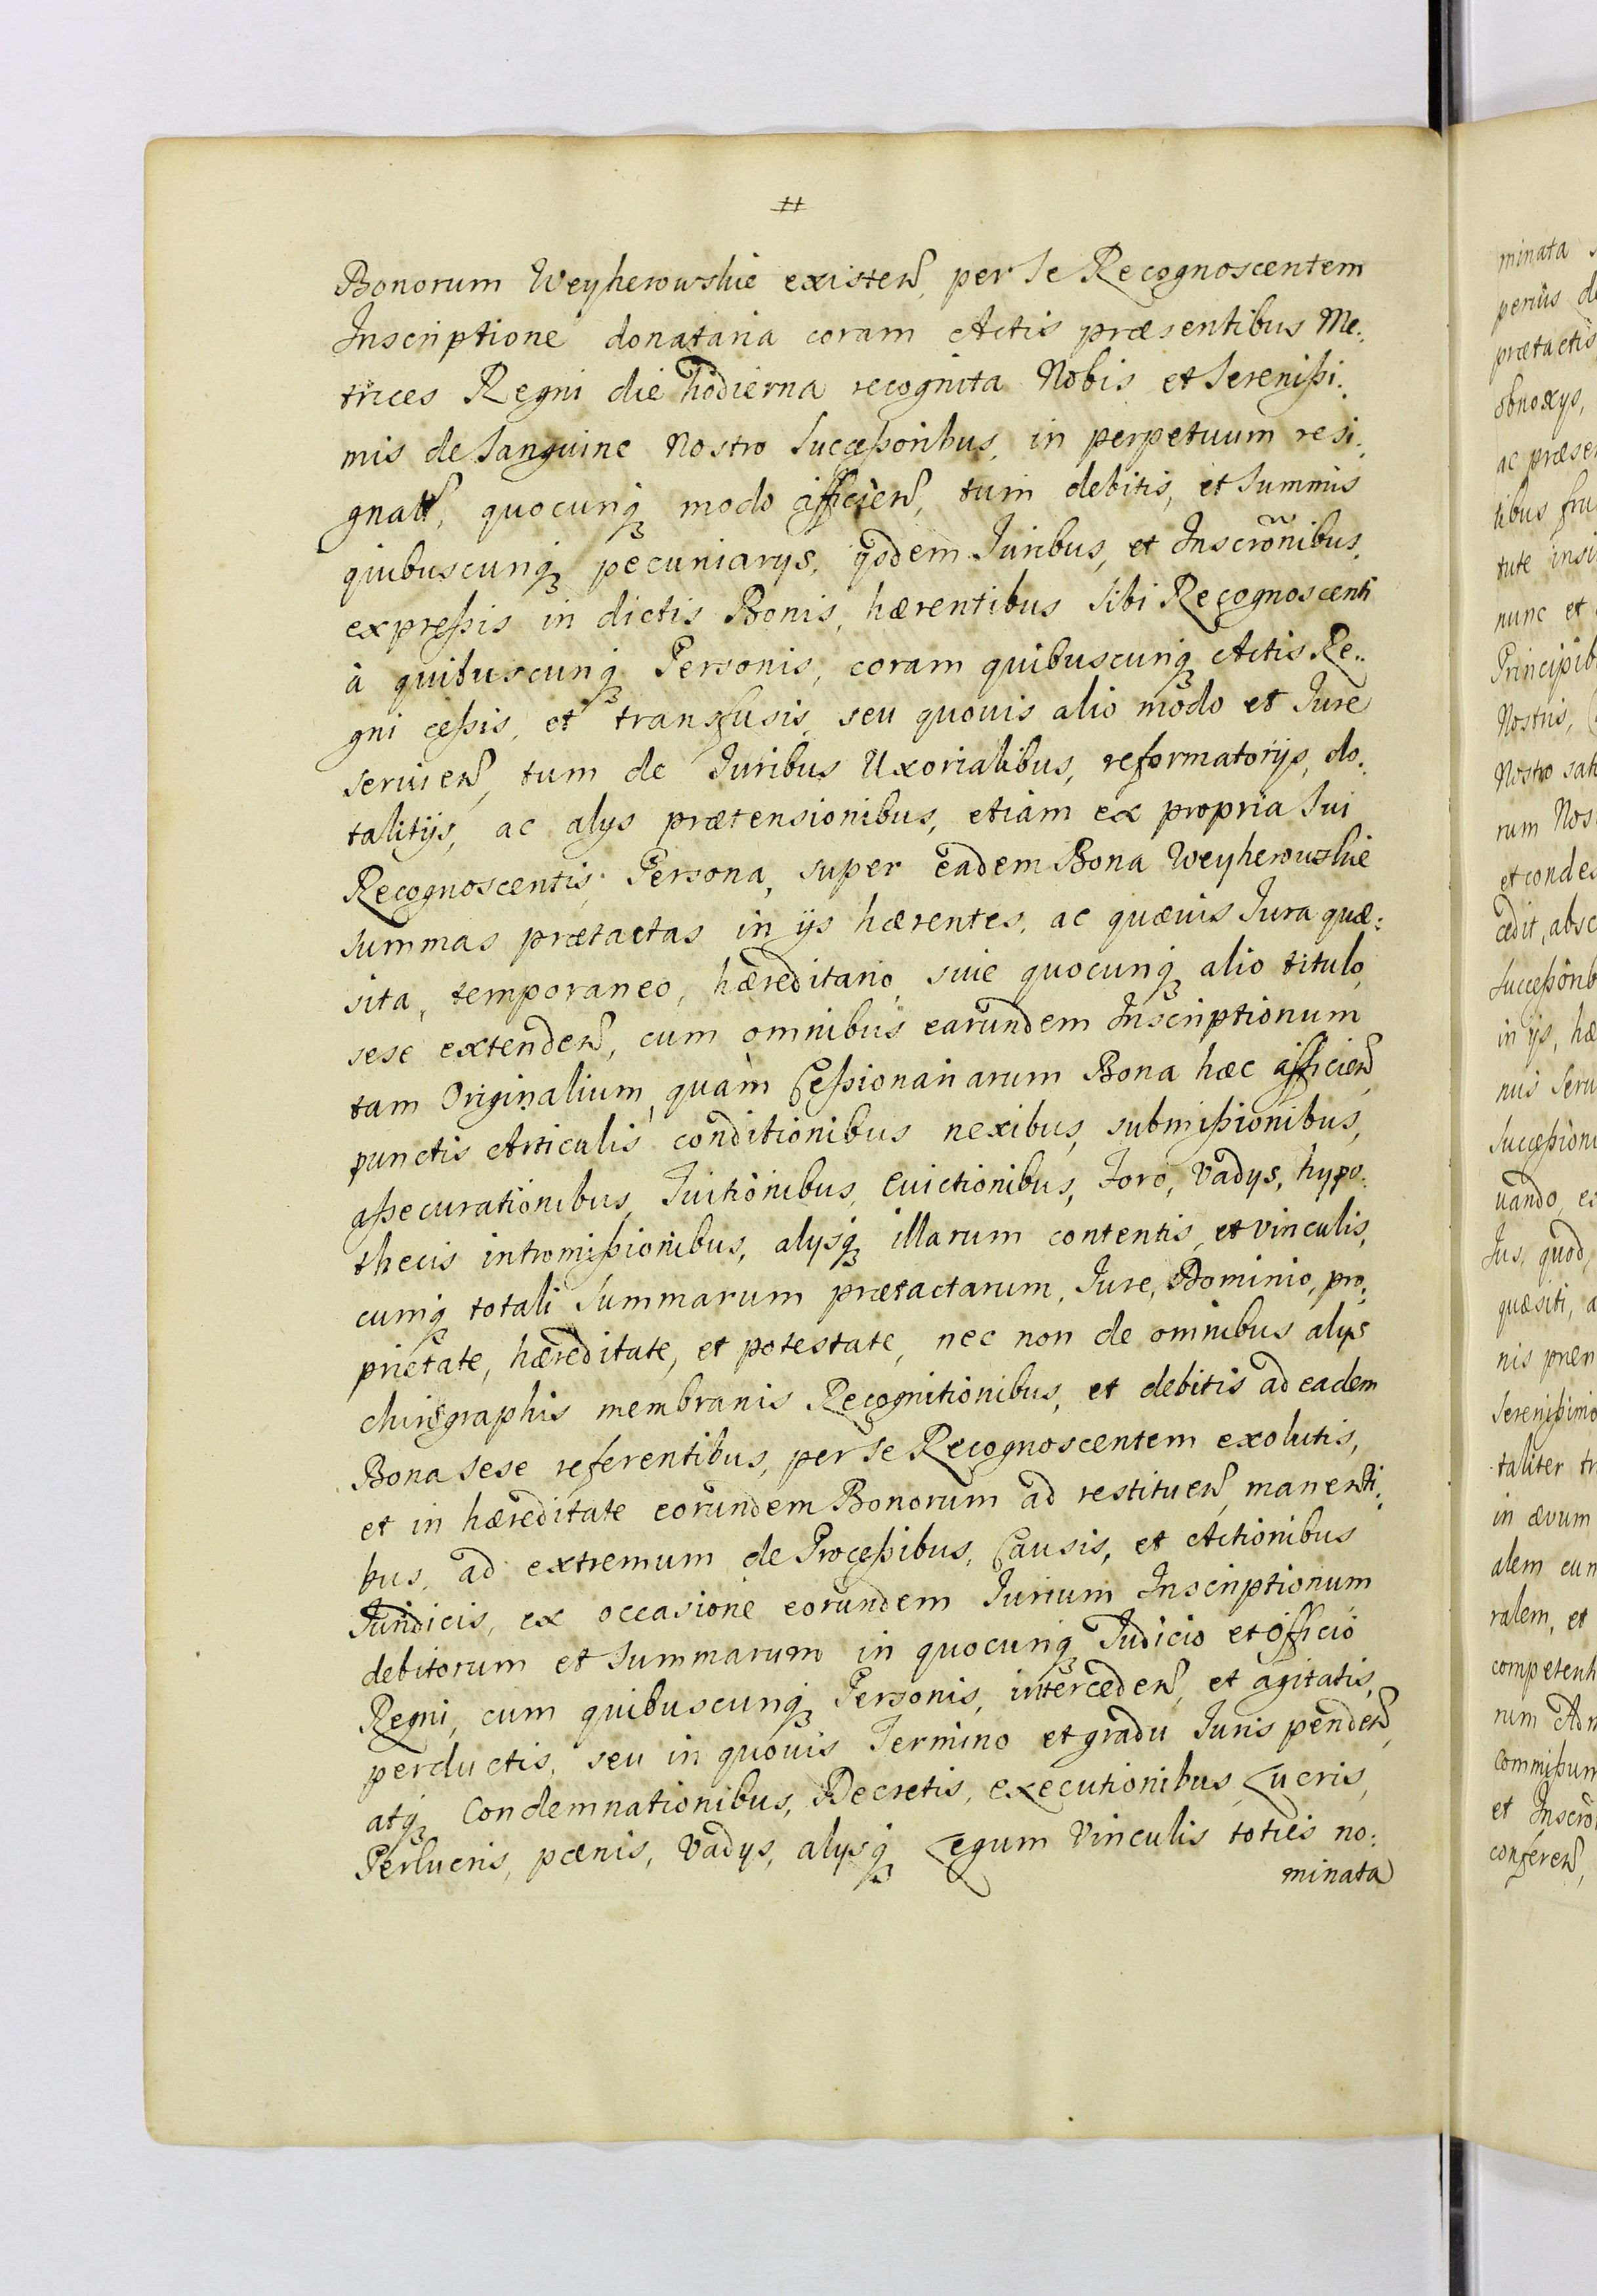 Bonorum Weyherowskie existen, per se Recognoscentem
Inscriptione donataria coram Actis præsentibus Me:
trices Regni die hodierna recognita Nobis et Serenißi:
mis de Sanguine Nostro Succeßoribus, in perpetuum resi:
gnatt, quocunq modo afficien, tum debitis, et Summis
quibuscunq pecuniarys, qdem Juribus, et Inscrõnibus,
expreßis in dictis Bonis, hærentibus Sibi Recognoscenti
à quibuscunq Personis, coram quibuscunq Actis Re:
gni ceßis, et transfusis, seu quouis alio modo et Jure
seruien, tum de Juribus Uxorialibus, reformatorijs, do:
talitijs, ac alys prætensionibus, etiam ex propria Sui
Recognoscentis Persona, super eadem Bona Weyherowskie
Summas prætactas in ijs hærentes, ac quævis Jura quæ:
sita, temporaneo, hæreditario, siue quocunq alio titulo,
sese extenden, cum omnibus earundem Inscriptionum
tam Originalium, quàm Ceßionariarum Bona hæc afficien
punctis Articulis conditionibus nexibus, submißionibus,
aßecurationibus, Tuitionibus, Euictionibus, Foro, Vadys, hypo:
thecis intromißionibus, alysq illarum contentis, et vinculis,
cumq totali Summarum prætactarum, Jure, Dominio, pro:
prietate, hæreditate, et potestate, nec non de omnibus alys
chirographis membranis Recognitionibus, et debitis ad eadem
Bona sese referentibus, per se Recognoscentem exolutis,
et in hæreditate eorundem Bonorum ad restituen, manenti:
bus, ad extremum de Proceßibus, Causis, et Actionibus
Juridicis, ex occasione eorundem Jurium Inscriptionum
debitorum et Summarum in quocunq Judicio et Officio
Regni, cum quibuscunq Personis, interceden, et agitatis,
perductis, seu in quouis Termino et gradu Juris penden,
atq Condemnationibus, Decretis, executionibus, Lucris,
Perlucris, pænis, Vadys, alysq Legum Vinculis toties no:
minata
minata
perius
prætactis
obnoxys,
tibus
nunc et
Nostris,
Nostro
in ijs,
Jus, quod,
quæsiti,
taliter
in ævum
alem cum
ralem, et
conferen,